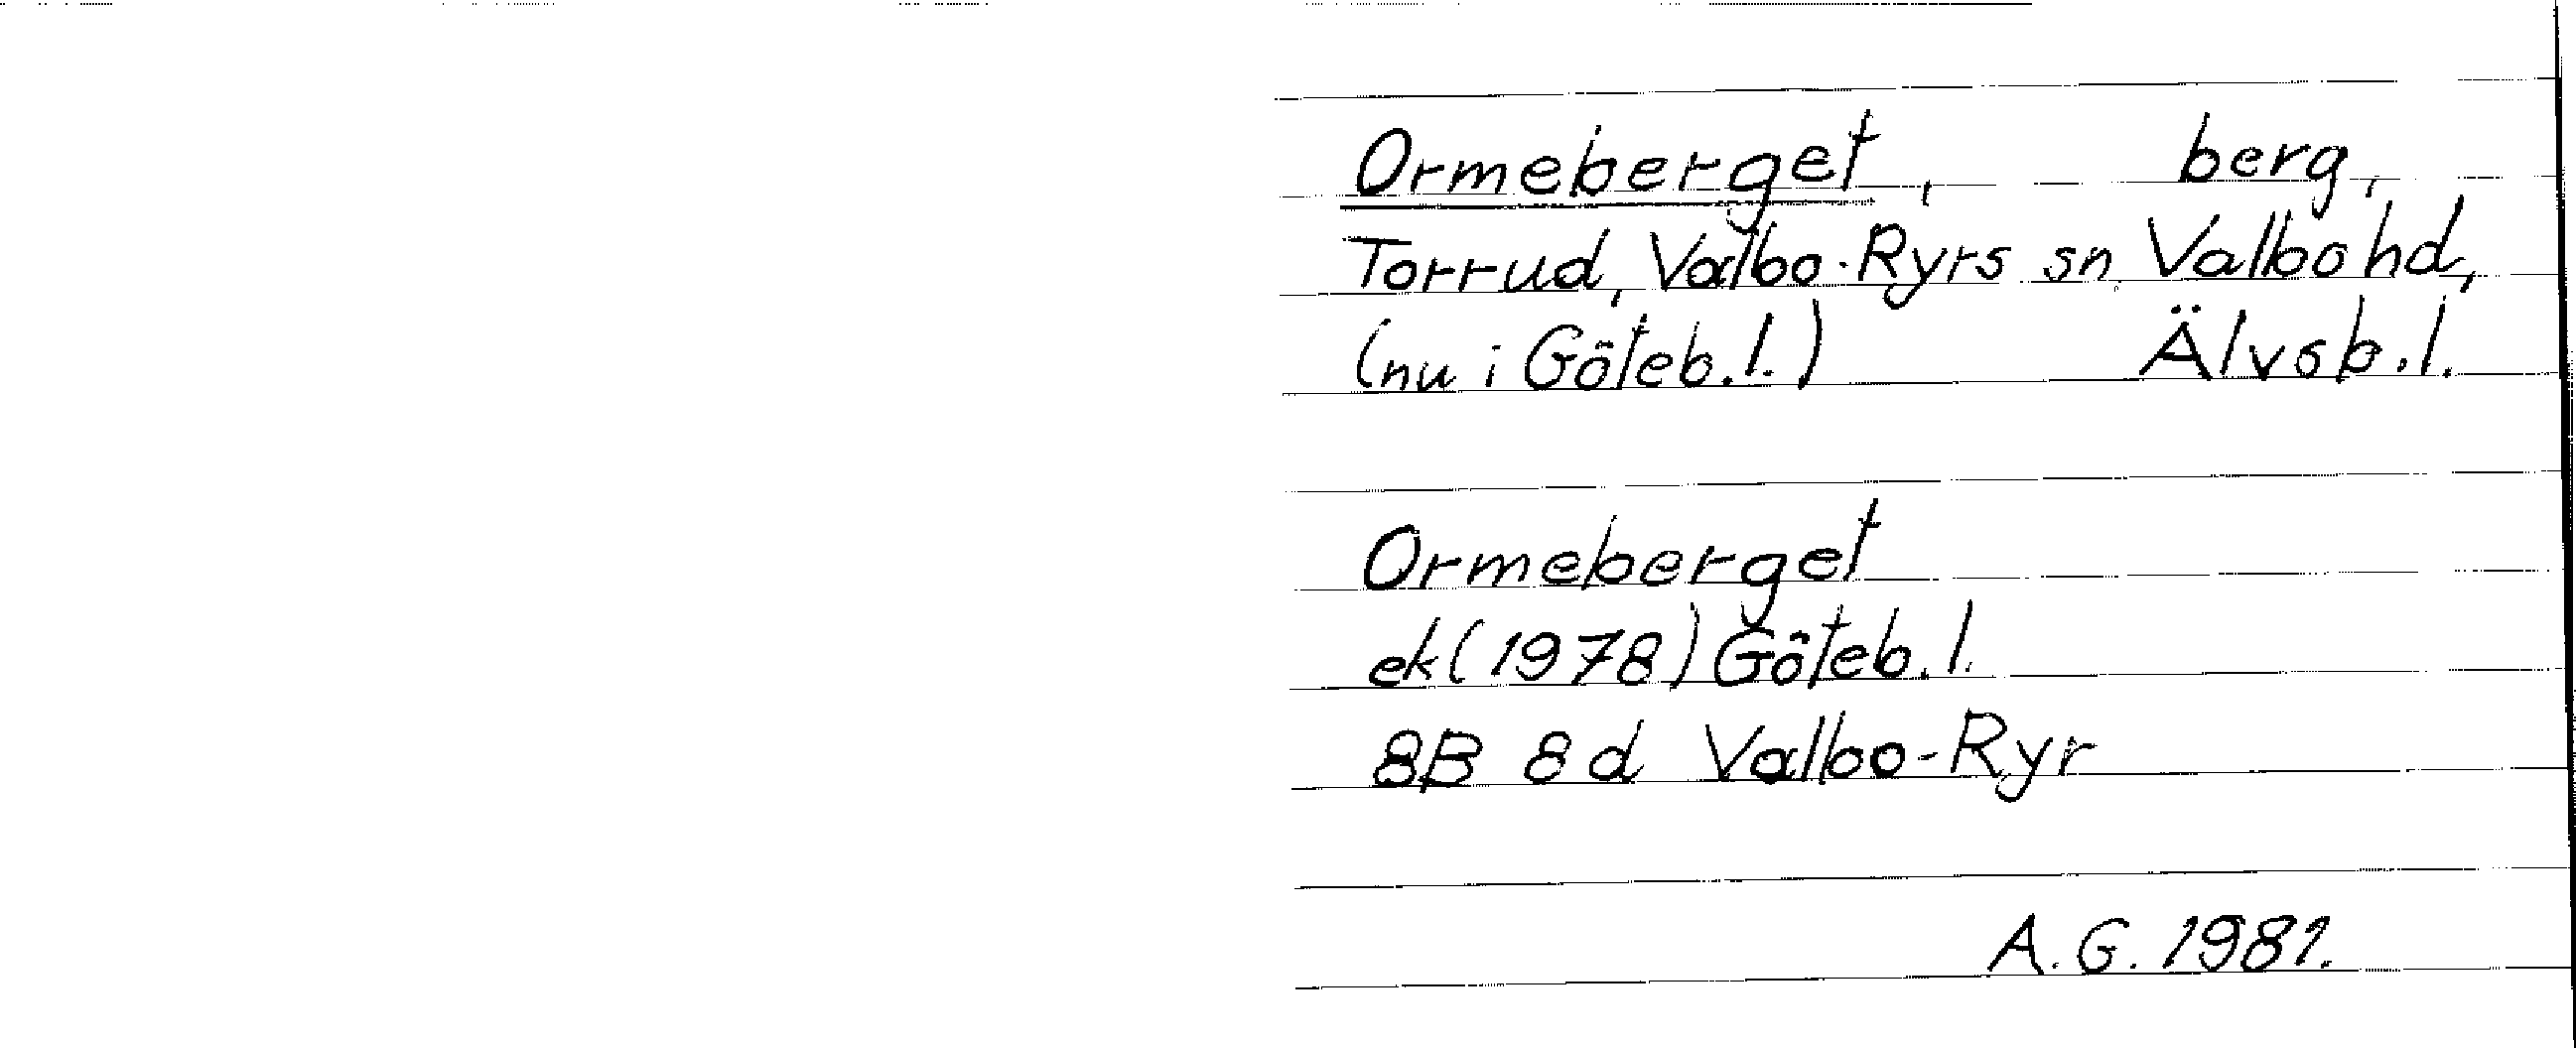 Ormeberget, berg,
Torrud, Valbo-Ryrs sn, Valbo hd,
(nu i Göteb.l.) Älvsb.l.
Ormeberget
ek (1978) Göteb.l.
8B 8d Valbo-Ryr
A.G. 1981.